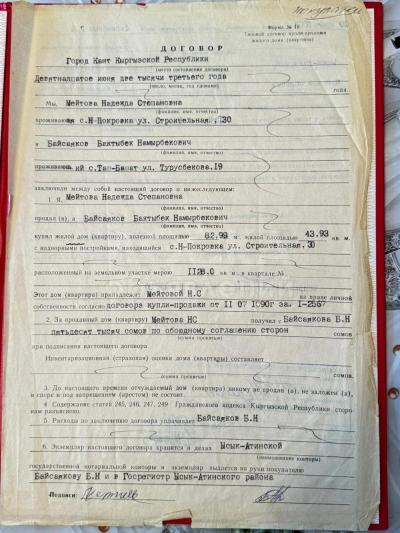 Форма № 18
Типовой договор купли-продажи
жилого дома (квартиры)
ДОГОВОР
Город Кант Кыргызской Республики
(место составления договора)
Девятнадцатое июня две тысячи третьего года
(число, месяц, год словами)
года.
Мы, Мейтова Надежда Степановна
(фамилия, имя, отчество)
проживающая с.Н-Покровка ул. Строительная, 30
и Байсаяков Бактыбек Намырбекович
(фамилия, имя, отчество)
проживающий с.Таш-Башат ул. Турусбекова.19
заключили между собой настоящий договор о нижеследующем:
1. Я, Мейтова Надежда Степановна
(фамилия, имя, отчество)
продал (а), а Байсаяков Бактыбек Намырбекович
(фамилия, имя, отчество)
купил жилой дом (квартиру), полезной площадью 82.99 м., жилой площадью 43.93 кв. м.
с надворными постройками, находящийся с.Н-Покровка ул. Строительная.30
расположенный на земельном участке мерою 1128.0 кв. м в квартале №
Этот дом (квартира) принадлежит Мейтовой Н.С на праве личной
собственности согласно договора купли-продажи от 11 07 1990г за№ 1-2567
2. За проданный дом (квартиру) Мейтова НС получил с Байсаякова Б.Н
пятьдесят тысяч сомов по обоюдному соглашению сторон
(сумма прописью)
при подписании настоящего договора.
Инвентаризационная (страховая) оценка дома (квартиры) составляет
сомов.
(сумма прописью)
3. До настоящего времени отчуждаемый дом (квартира) никому не продан (а), не заложен (а),
в споре и под запрещением (арестом) не состоит.
4. Содержание статей 245, 246, 247, 249 Гражданского кодекса Кыргызской Республики сторо-
нам разъяснено.
5. Расходы по заключению договора уплачивает Байсаяков Б.Н
6. Экземпляр настоящего договора хранится в делах Ысык-Атинской
(наименование конторы)
государственной нотариальной конторы и экземпляр выдается на руки покупателю
Байсаякову Б.Н и в Госрегистр Ысык-Атинского района
Подписи: